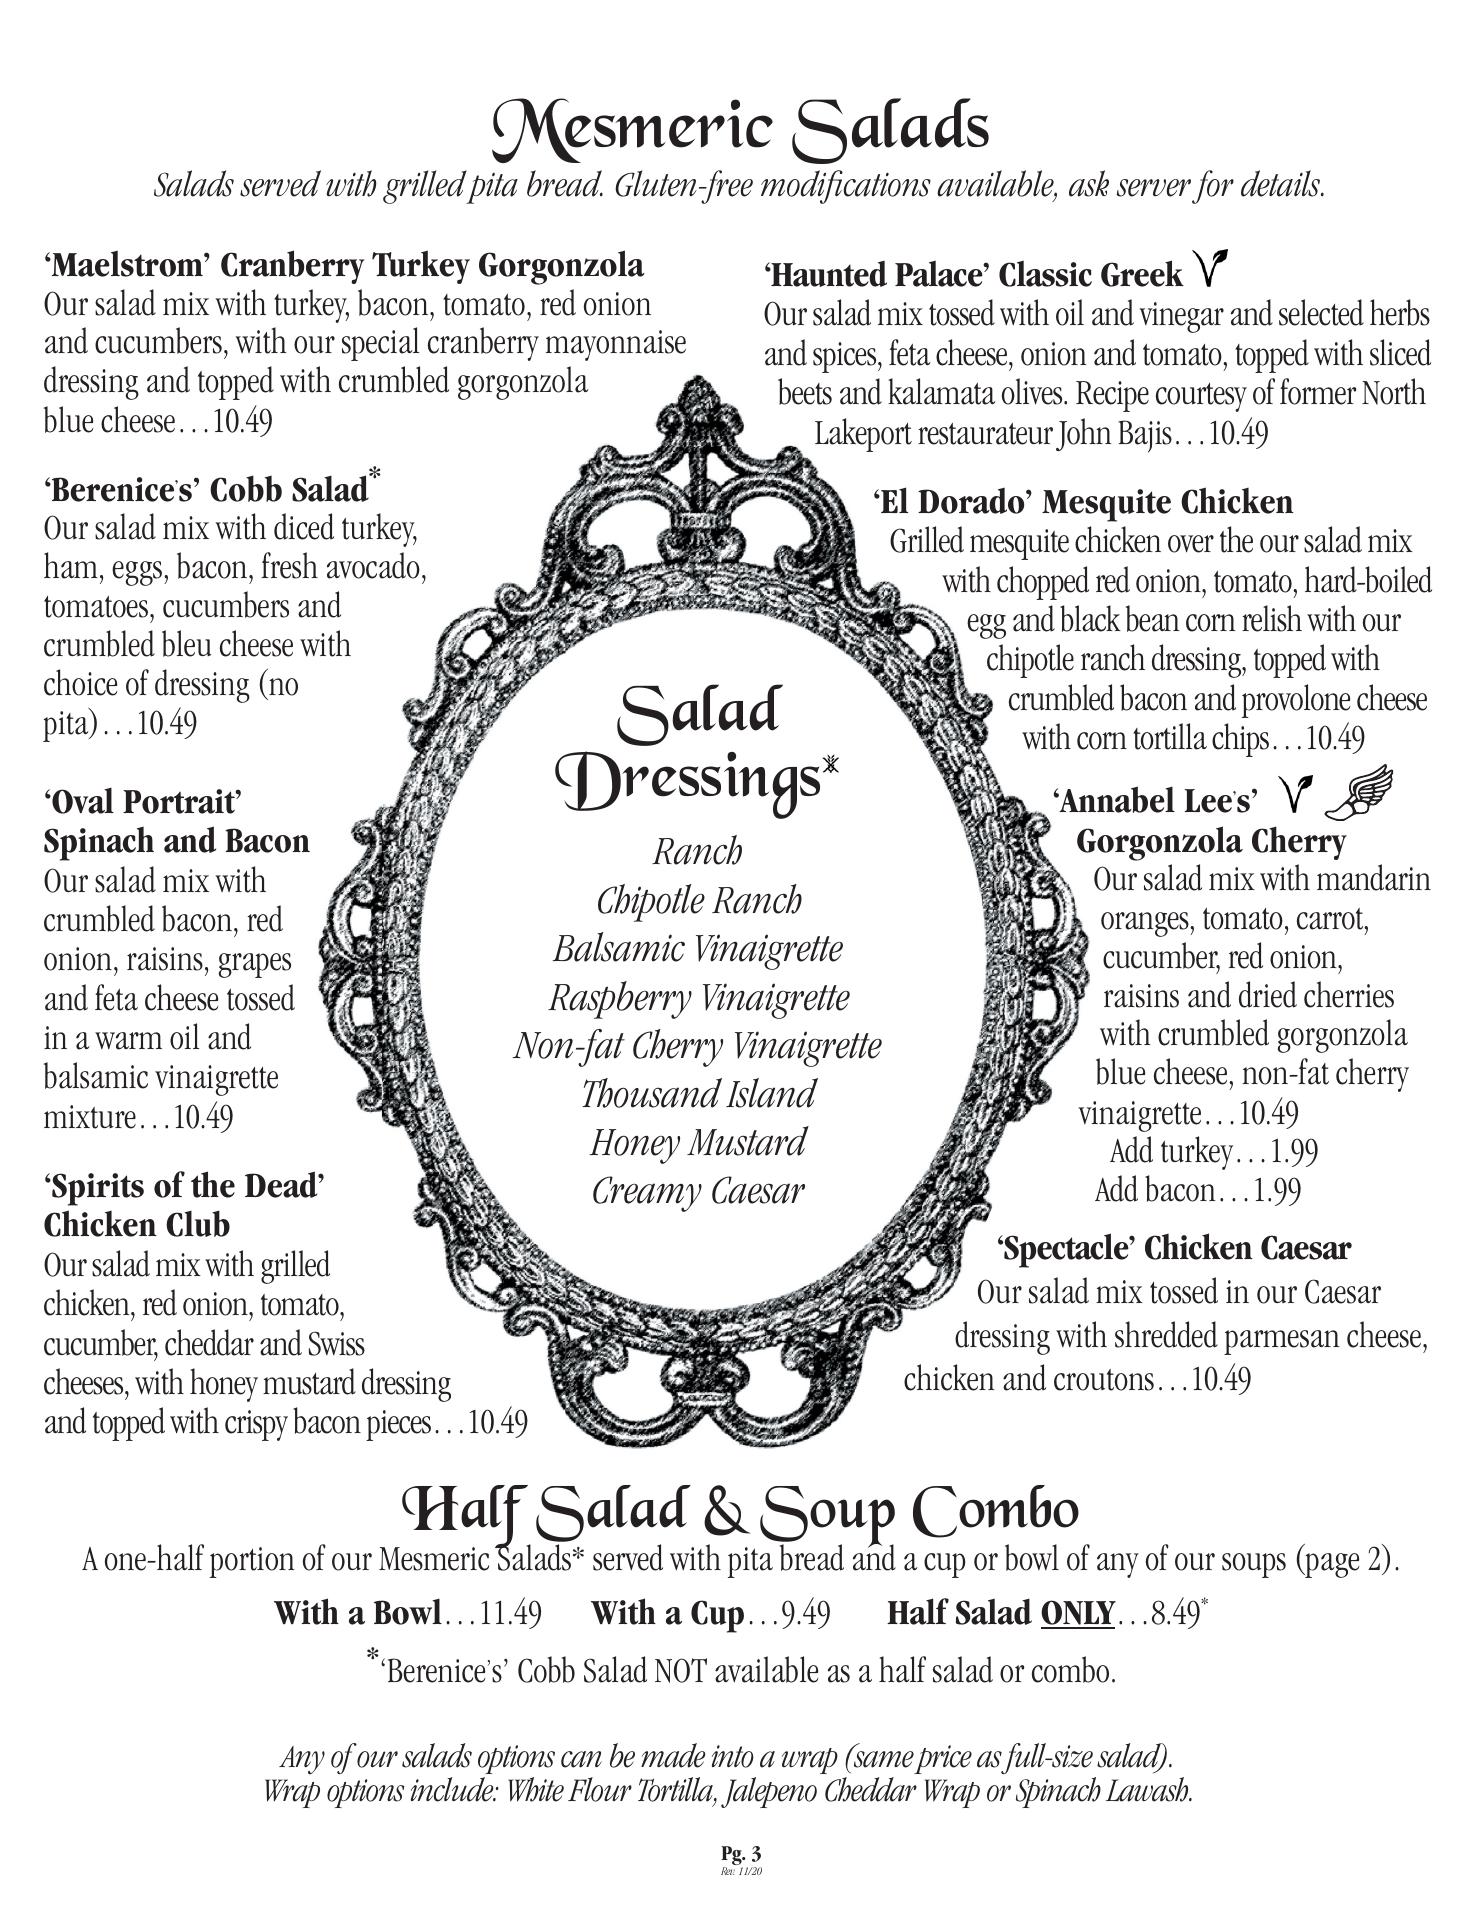 Mesmeric Salads
Salads served with grilled pita bread. Gluten-free modifications available, ask server for details.
‘Maelstrom’ Cranberry Turkey Gorgonzola
Our salad mix with turkey, bacon, tomato, red onion
and cucumbers, with our special cranberry mayonnaise
dressing and topped with crumbled gorgonzola
blue cheese...10.49
‘Berenice's’ Cobb Salad*
Our salad mix with diced turkey,
ham, eggs, bacon, fresh avocado,
tomatoes, cucumbers and
crumbled bleu cheese with
choice of dressing (no
pita)...10.49
‘Oval Portrait’
Spinach and Bacon
Our salad mix with
crumbled bacon, red
onion, raisins, grapes
and feta cheese tossed
in a warm oil and
balsamic vinaigrette
mixture...10.49
‘Spirits of the Dead’
Chicken Club
Our salad mix with grilled
chicken, red onion, tomato,
cucumber, cheddar and Swiss
cheeses, with honey mustard dressing
and topped with crispy bacon pieces...10.49
Salad
Dressings
Ranch
Chipotle Ranch
Balsamic Vinaigrette
Raspberry Vinaigrette
Non-fat Cherry Vinaigrette
Thousand Island
Honey Mustard
Creamy Caesar
‘Haunted Palace’ Classic Greek
Our salad mix tossed with oil and vinegar and selected herbs
and spices, feta cheese, onion and tomato, topped with sliced
beets and kalamata olives. Recipe courtesy of former North
Lakeport restaurateur John Bajis...10.49
‘El Dorado’ Mesquite Chicken
Grilled mesquite chicken over the our salad mix
with chopped red onion, tomato, hard-boiled
egg and black bean corn relish with our
chipotle ranch dressing, topped with
crumbled bacon and provolone cheese
with corn tortilla chips...10.49
‘Annabel Lee's’
Gorgonzola Cherry
Our salad mix with mandarin
oranges, tomato, carrot,
cucumber, red onion,
raisins and dried cherries
with crumbled gorgonzola
blue cheese, non-fat cherry
vinaigrette...10.49
Add turkey...1.99
Add bacon...1.99
‘Spectacle’ Chicken Caesar
Our salad mix tossed in our Caesar
dressing with shredded parmesan cheese,
chicken and croutons...10.49
Half Salad & Soup Combo
A one-half portion of our Mesmeric Salads* served with pita bread and a cup or bowl of any of our soups (page 2).
With a Bowl...11.49 With a Cup...9.49 Half Salad ONLY...8.49*
*‘Berenice's’ Cobb Salad NOT available as a half salad or combo.
Any of our salads options can be made into a wrap (same price as full-size salad).
Wrap options include: White Flour Tortilla, Jalepeno Cheddar Wrap or Spinach Lawash.
Pg. 3
Rev. 11/20